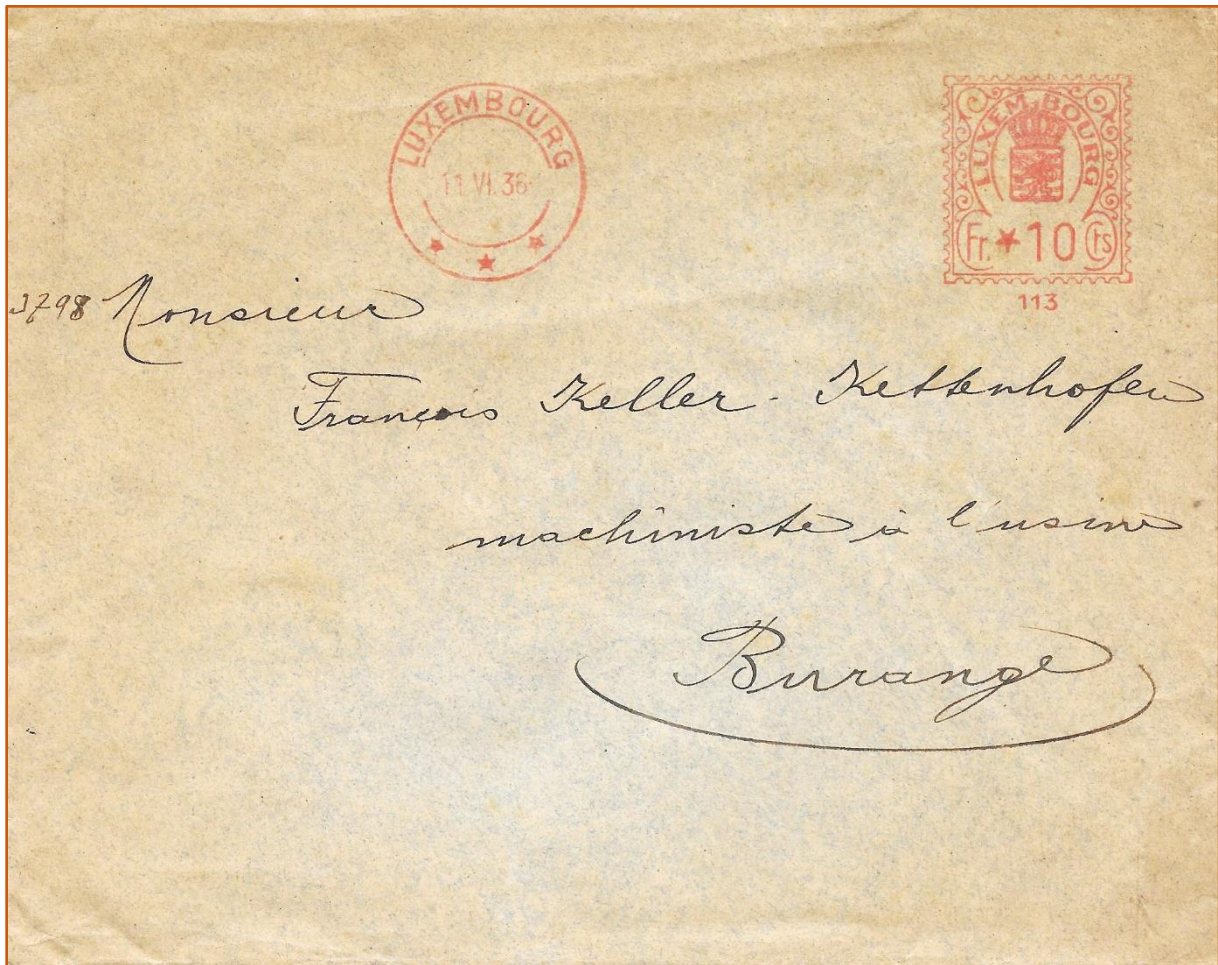 LUXEMBOURG
11 VI. 36
LUXEMBOURG
Fr. ★ 10 cts
113
3798 Monsieur
François Keller - Kettenhofen
machiniste à l'usine
Burange